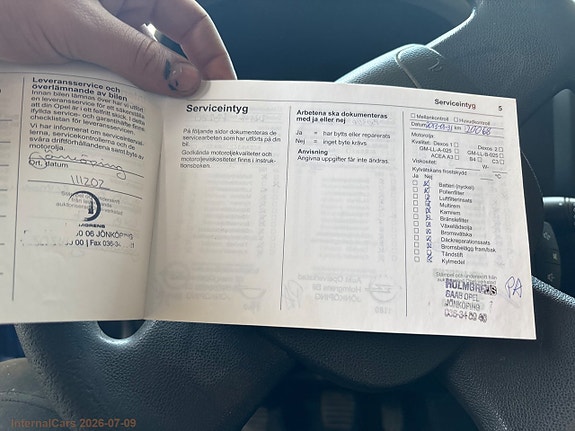 Leveransservice och
överlämnande av bilen
Innan bilen lämnas över har vi utfört
en leveransservice för att säkerställa
att din Opel är i ett felfritt skick, i den
följda service- och garantihäfte finns
checklistan för leveransservicen.
Vi har informerat om serviceinterval-
lerna, servicekontrollerna och din bils
svåra driftförhållanden samt byte av
Jönköping
Ort, datum
111202
06 JÖNKÖPING
00 | Fax 036-34
Serviceintyg
På följande sidor dokumenteras de
servicearbeten som har utförts på din
bil.
Godkända motoroljekvaliteter och
motoroljeviskositeter finns i instruk-
tionsboken.
Arbetena ska dokumenteras
med ja eller nej
Ja = har bytts eller reparerats
Nej = inget byte krävs
Anvisning
Angivna uppgifter får inte ändras.
Serviceintyg 5
Mellankontroll Huvudkontroll
Datum km
Motorolja:
Kvalitet: Dexos 1 Dexos 2
GM-LL-A-025 GM-LL-B-025
ACEA A3 B4 C3
Viskositet: W-
Kylvätskans frostskydd °C
Ja Nej
Batteri (nyckel)
Pollenfilter
Luftfilterinsats
Multirem
Kamrem
Bränslefilter
Växellådsolja
Bromsvätska
Däckreparationssats
Bromsbelägg fram/bak
Tändstift
Kylmedel
HOLMGRENS
SAAB OPEL
JÖNKÖPING
PA
InternalCars 2026-07-09